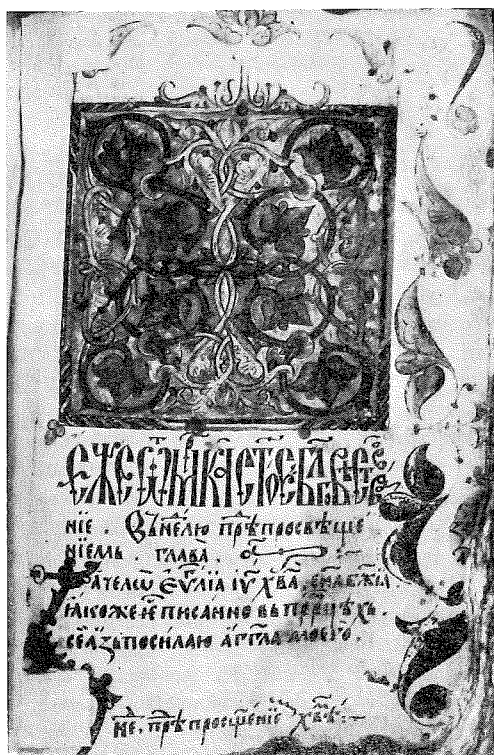 ЕЖЕ Ѿ МАⷬ҇КА СТОЕ БЛ҃ГОВѢСТВОВА
нїе . Въ неⷣлю прѣⷣ просвѣще
нїемь . глава . 
Зачтело еѵⷢ҇лїа іѵ҃ хв҃а , сн҃а бж҃їа .
ꙗкоже еⷭ҇ писанно въ прⷪ҇рцѣхъ .
се азъ посилаю аг҃гла моего .
неⷣ . прѣⷣ просщенїе хв҃ѣ :~